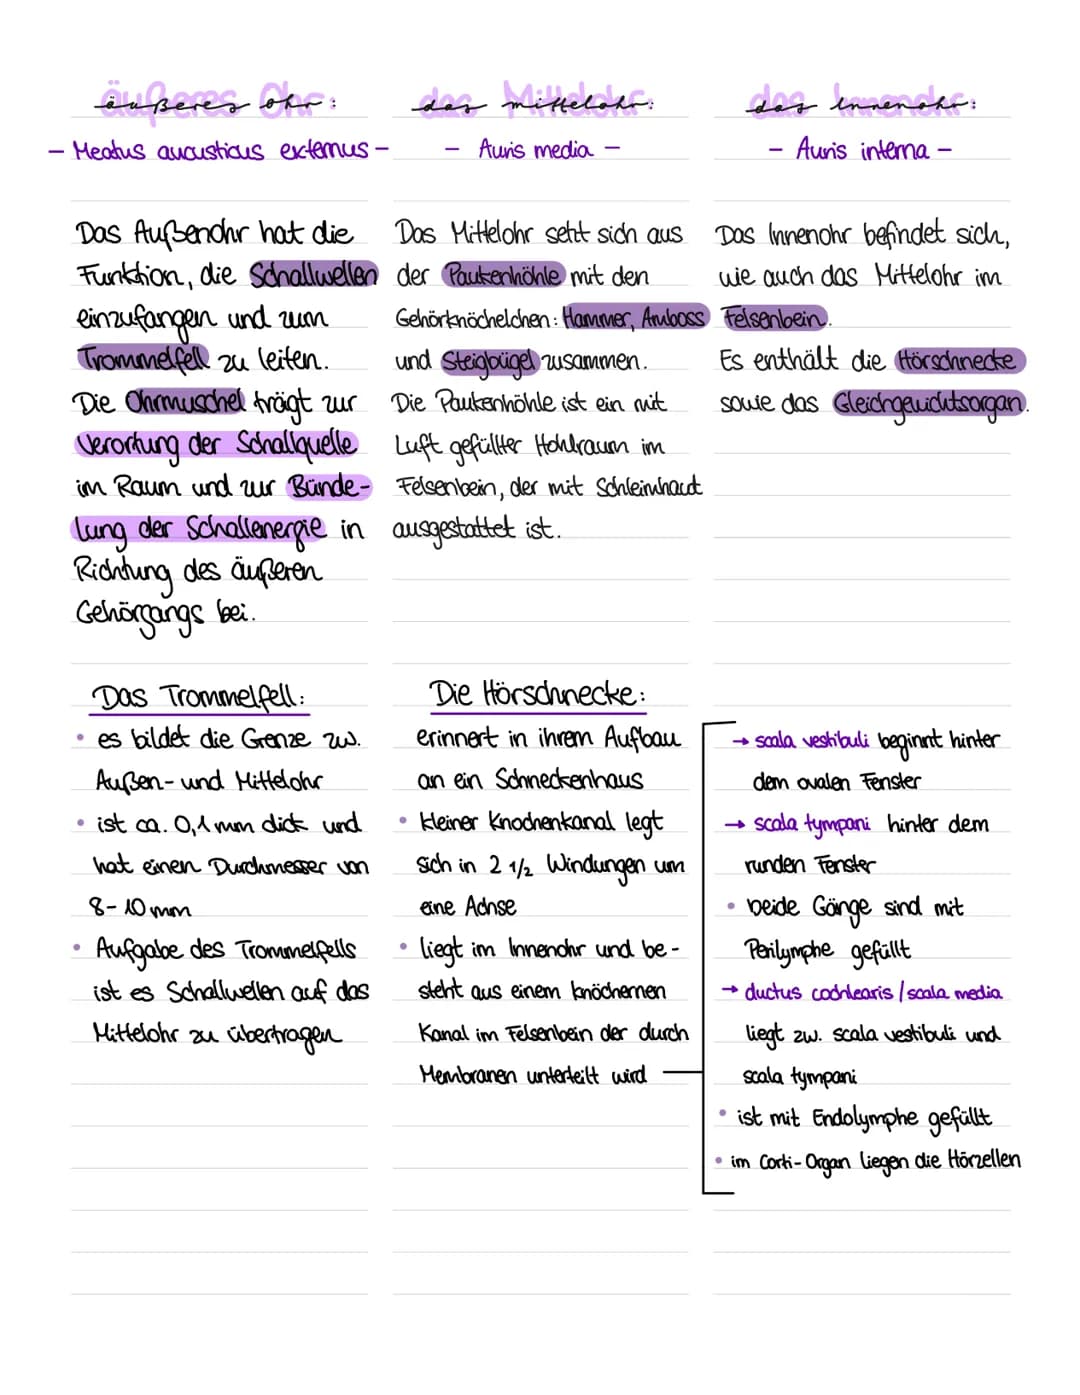 äußeres Ohr:
– Meatus aucusticus externus –
Das Außenohr hat die
Funktion, die Schallwellen
einzufangen und zum
Trommelfell zu leiten.
Die Ohrmuschel trägt zur
Verortung der Schallquelle
im Raum und zur Bünde-
lung der Schallenergie in
Richtung des äußeren
Gehörgangs bei.
das Mittelohr:
– Auris media –
Das Mittelohr setzt sich aus
der Paukenhöhle mit den
Gehörknöchelchen: Hammer, Amboss
und Steigbügel zusammen.
Die Paukenhöhle ist ein mit
Luft gefüllter Hohlraum im
Felsenbein, der mit Schleimhaut
ausgestattet ist.
das Innenohr:
– Auris interna –
Das Innenohr befindet sich,
wie auch das Mittelohr im
Felsenbein.
Es enthält die Hörschnecke
sowie das Gleichgewichtsorgan.
Das Trommelfell:
• es bildet die Grenze zw.
Außen- und Mittelohr
• ist ca. 0,1 mm dick und
hat einen Durchmesser von
8-10 mm
• Aufgabe des Trommelfells
ist es Schallwellen auf das
Mittelohr zu übertragen
Die Hörschnecke:
erinnert in ihrem Aufbau
an ein Schneckenhaus
• kleiner Knochenkanal legt
sich in 2 1/2 Windungen um
eine Achse
• liegt im Innenohr und be-
steht aus einem knöchernen
Kanal im Felsenbein der durch
Membranen unterteilt wird
→ scala vestibuli beginnt hinter
dem ovalen Fenster
→ scala tympani hinter dem
runden Fenster
• beide Gänge sind mit
Perilymphe gefüllt
→ ductus cochlearis / scala media
liegt zw. scala vestibuli und
scala tympani
• ist mit Endolymphe gefüllt
• im Corti-Organ liegen die Hörzellen